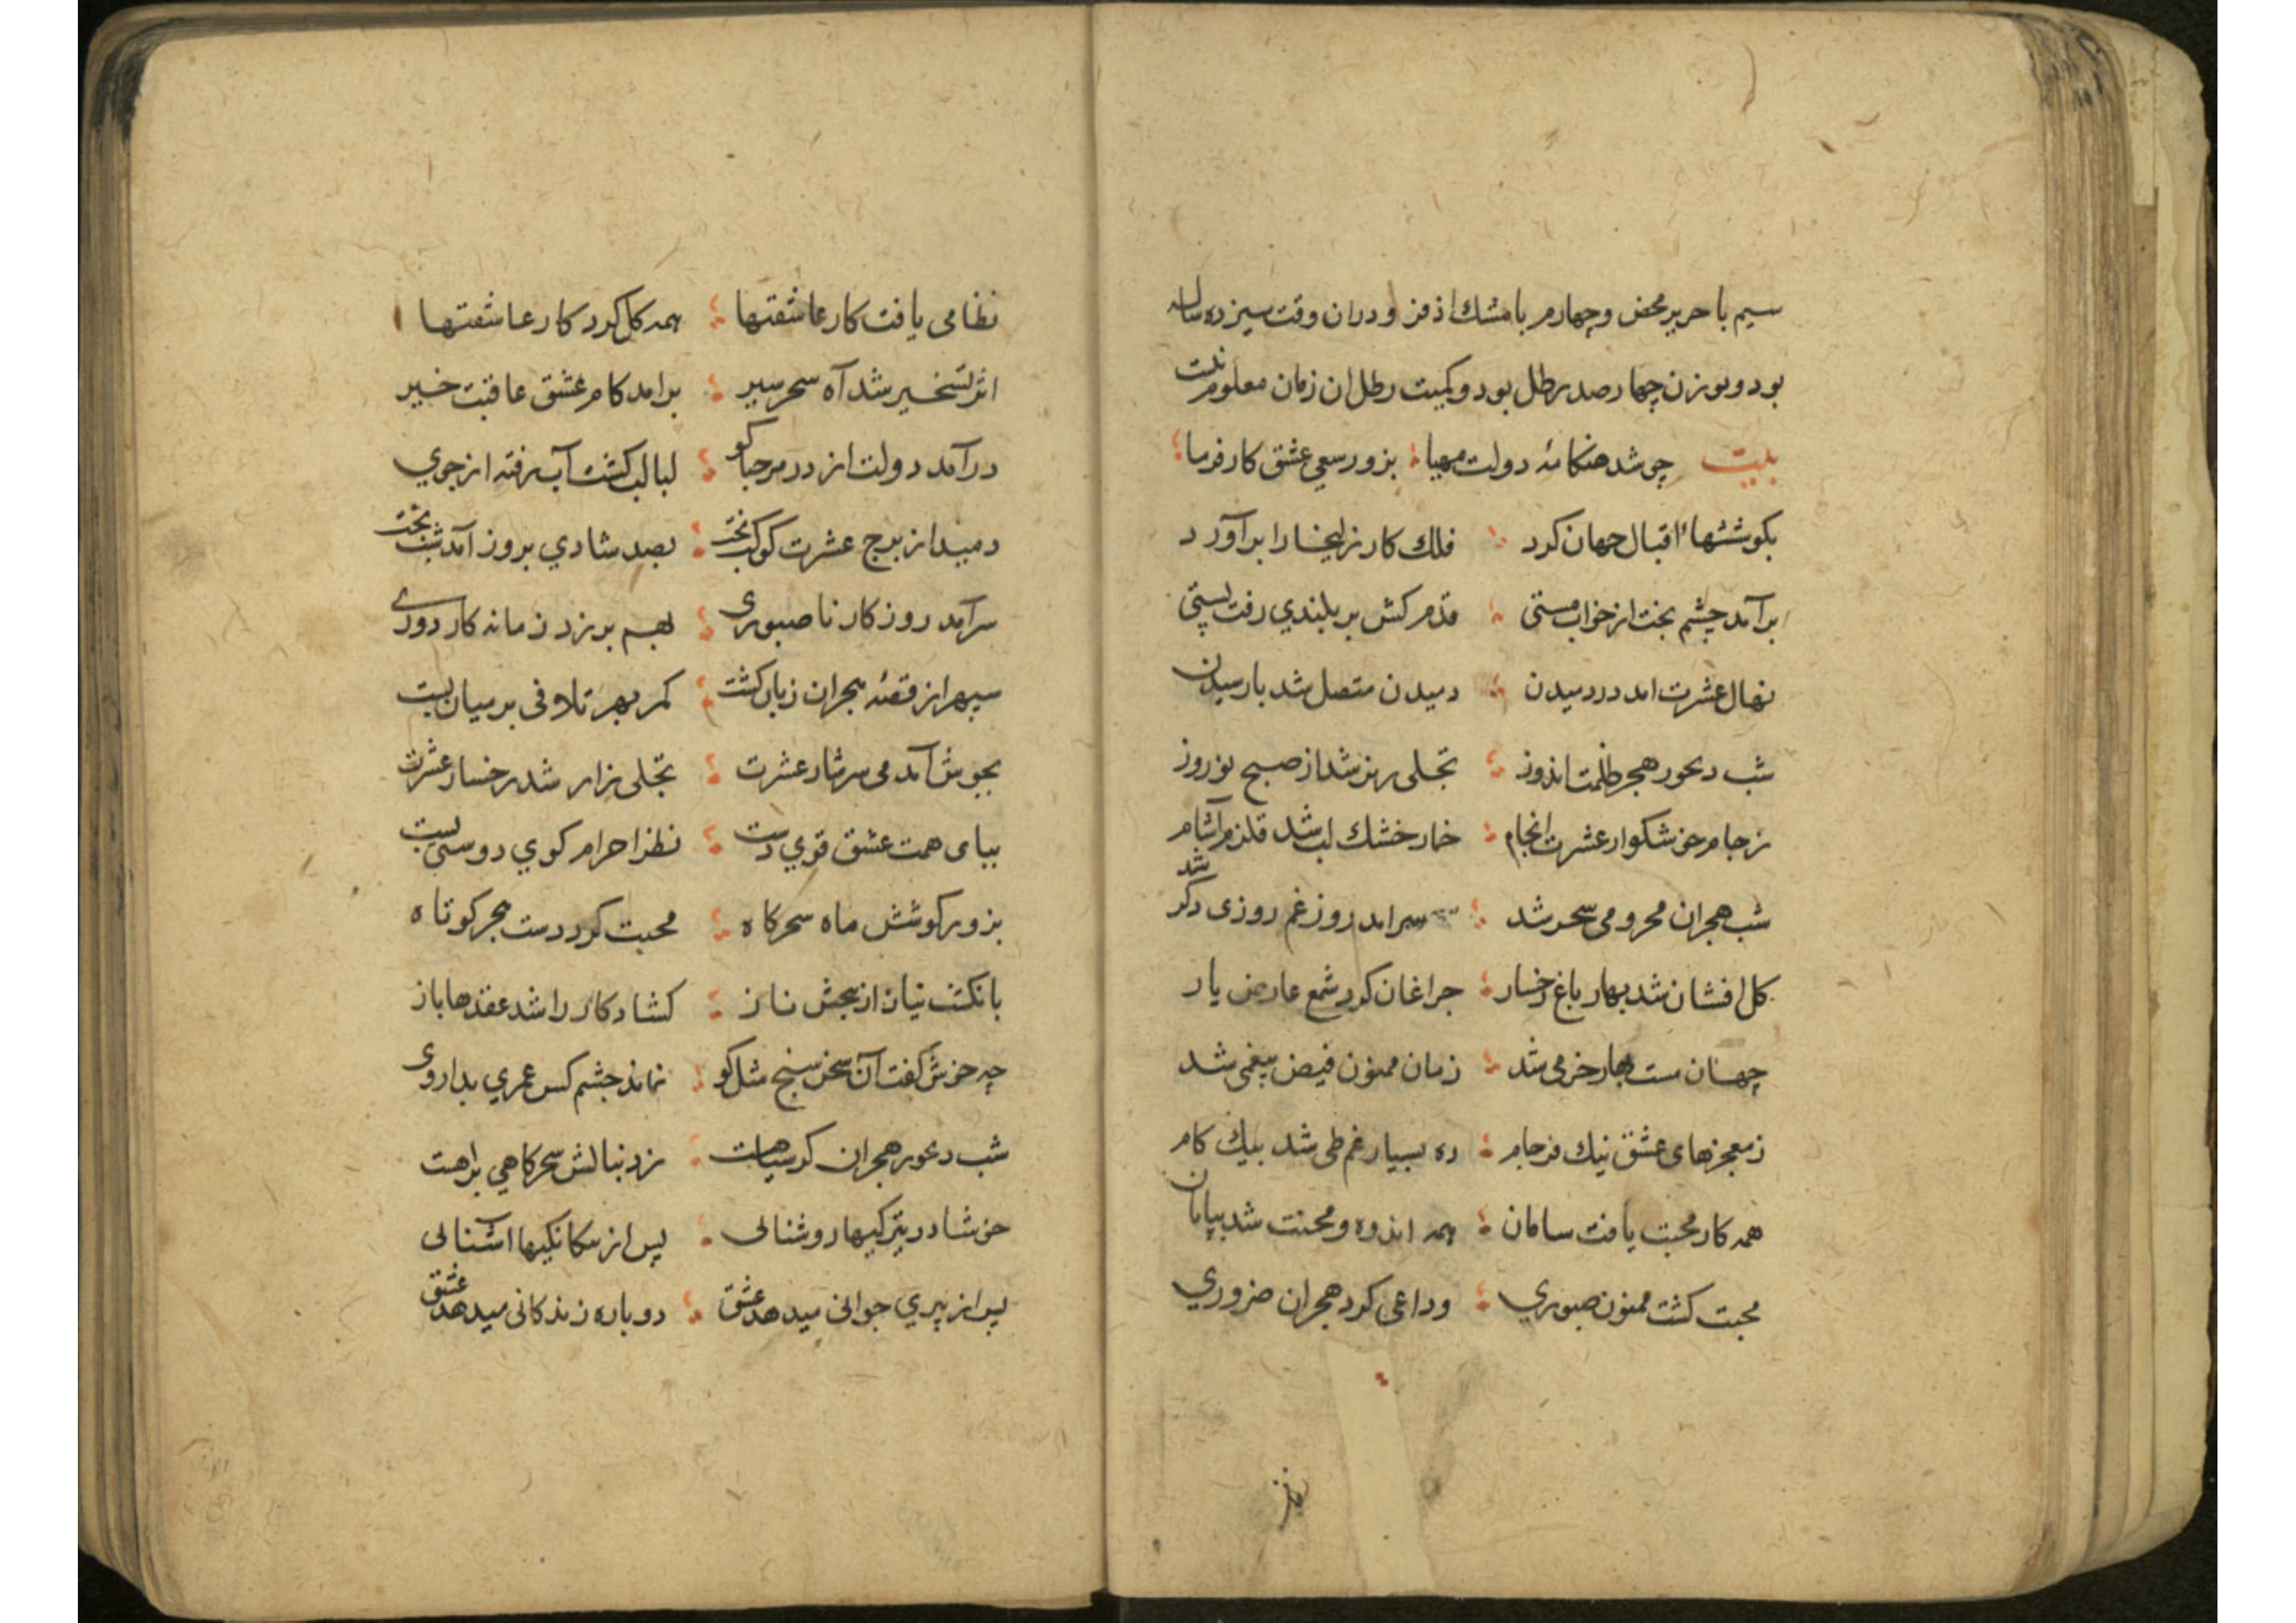 سیم با حریر محض و چهارم با مشك اذفر و دران وقت سیزده ساله
بود و بوزن چهار صد رطل بود و کمیت رطل ان زمان معلوم نیست
بیت چو شد هنكامهٔ دولت مهیا بزور سعی عشق کارفرما
بکوششهاٴ اقبال جهان کرد فلك کار زلیخا را براَورد
برآمد چشم بخت از خواب مستی قدم کش بر بلندي رفت پستی
نهال عشرت امد در دمیدن دمیدن متصل شد با رسیدن
شب دیجور هجر ظلمت اندوز تجلی ریز شد از صبح نوروز
ز جام خوشکوار عشرت انجام خمار خشك لب شد قلزم آشام
شب هجران محرومی سحر شد سرامد روز غم روزی دکر شد
کل افشان شد بهار باغ رخسار چراغان کرد شمع عارض یار
جهان مست بهار خرمی شد زمان ممنون فیض بیغمی شد
ز معجزهای عشق نیك فرجام ره بسیار غم طی شد بیك کام
همه کار محبت یافت سامان همه اندوه و محنت شد بپایان
محبت کشت ممنون صبوري وداعی کرد هجران ضروري
نظامی یافت کار عاشقتها همه کل کرد کار عاشقتها
اثر تسخیر شد آه سحر سیر برامد کام عشق عاقبت خیر
درآمد دولت از در مرحبا کو لبالب کشت آب رفته از جوي
دمید از برج عشرت کوکب بخت بصد شادي بروز آمد شب بخت
سرآمد روزکار ناصبوری بهم بر زد زمانه کار دوری
سپهر از قصهٔ هجران زبان کشت کمر بهر تلافی بر میان بست
بجوش آمد می سرشار عشرت تجلی زار شد رخسار عشرت
بپای همت عشق قوي دست نظر احرام کوي دوستی بست
بزور کوشش ماه سحرکاه محبت کرد دست هجر کوتاه
بانکشت نیاز از بخشش ناز کشاد کار را شد عقدها باز
چه خوش کفت آن سخن سنج مثل کو نماند چشم کس عمري بدا روی
شب دیجور هجران کر سیاهست ز دنبالش سحرکاهي براهست
خوشا در تیرکیها روشنائی پس از بیکانکیها اشنائی
پس از پیري جوانی میدهد عشق دوباره زندکانی میدهد عشق